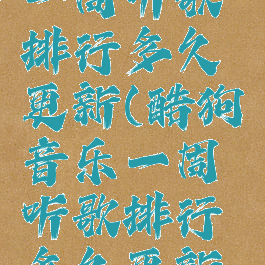 一周听歌
排行多久
更新(酷狗
音乐一周
听歌排行
多久更新